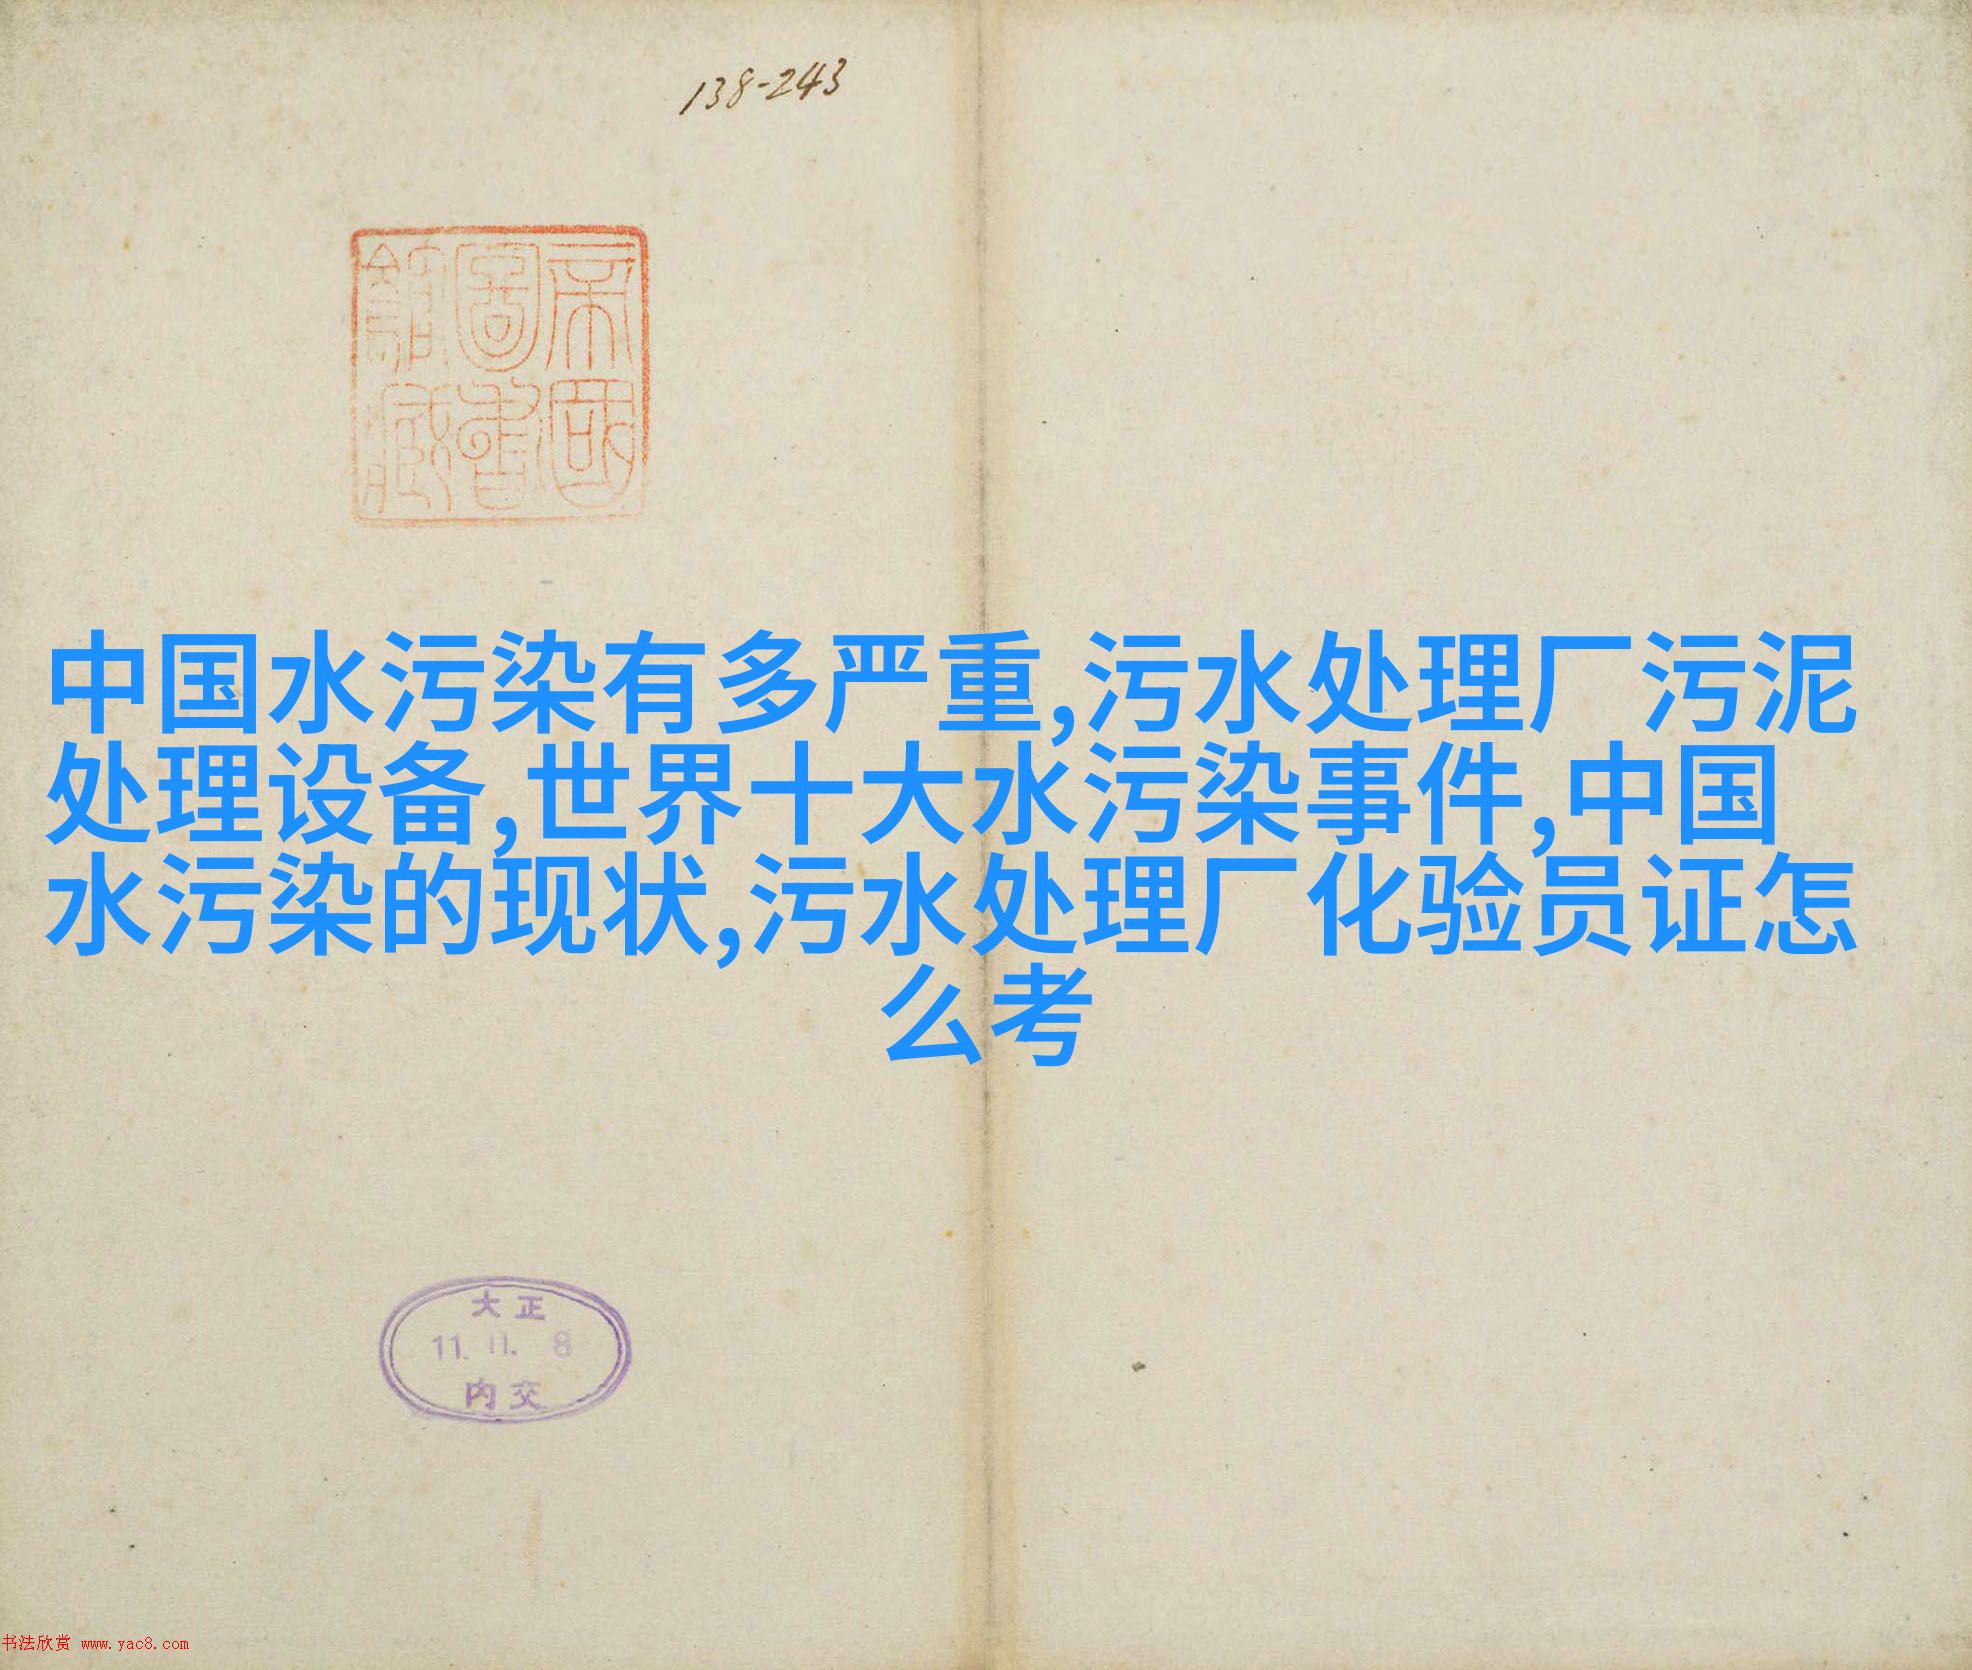 138-243
帝國
圖書
館藏
中国水污染有多严重,污水处理厂污泥
处理设备,世界十大水污染事件,中国
水污染的现状,污水处理厂化验员证怎
么考
大正
11.11.8
内交
书法欣赏 www.yac8.com